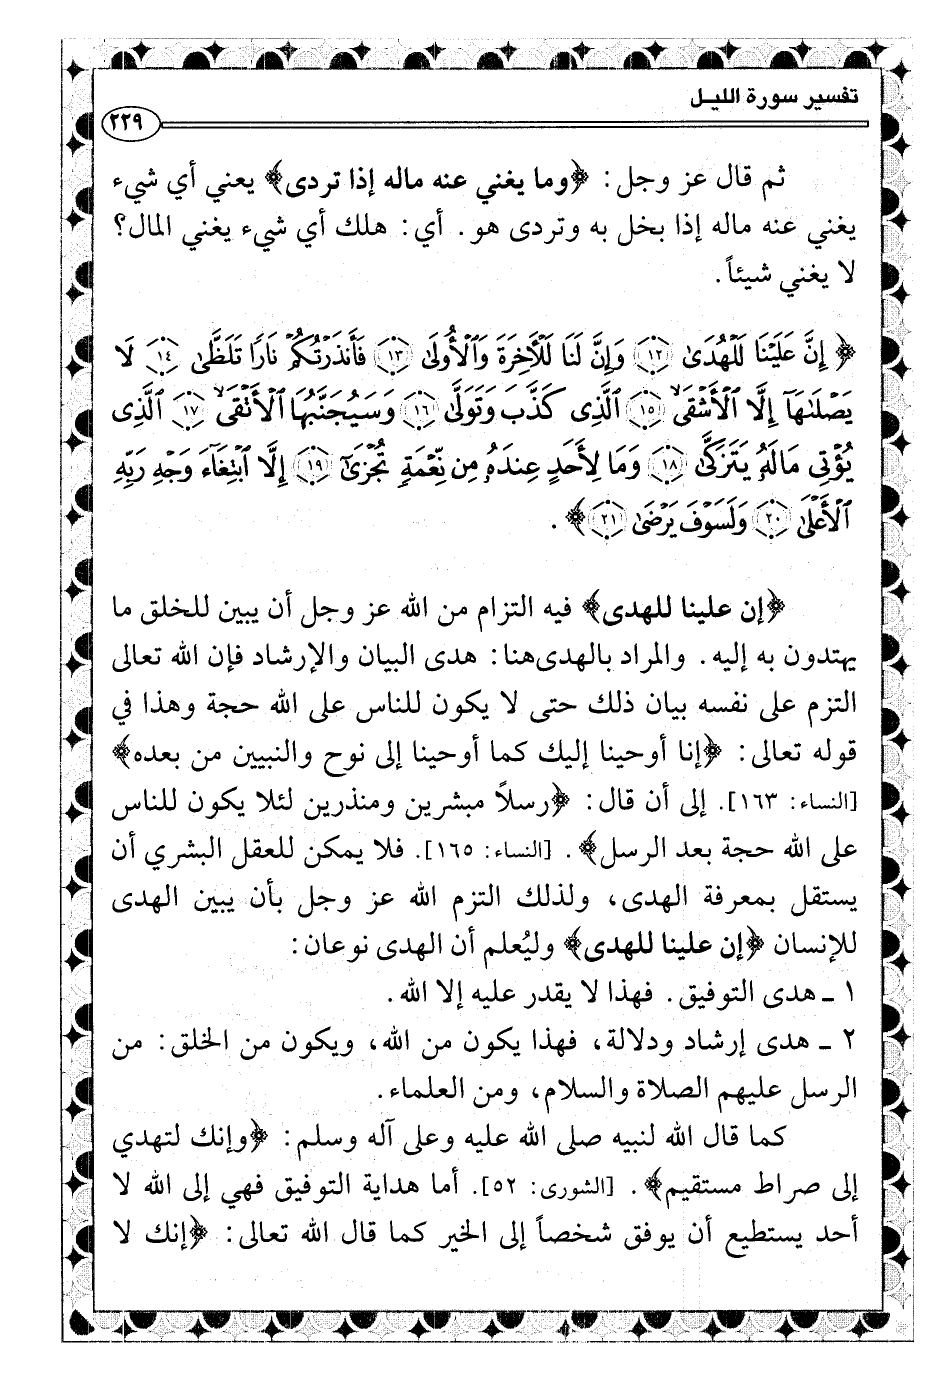 تفسير سورة الليـل
٢٢٩
ثم قال عز وجل: ﴿وما يغني عنه ماله إذا تردى﴾ يعني أي شيء
يغني عنه ماله إذا بخل به وتردى هو. أي: هلك أي شيء يغني المال؟
لا يغني شيئاً.
﴿ إِنَّ عَلَيْنَا لَلْهُدَىٰ ١٢ وَإِنَّ لَنَا لَلْآخِرَةَ وَٱلْأُولَىٰ ١٣ فَأَنذَرْتُكُمْ نَارًا تَلَظَّىٰ ١٤ لَا
يَصْلَىٰهَآ إِلَّا ٱلْأَشْقَى ١٥ ٱلَّذِى كَذَّبَ وَتَوَلَّىٰ ١٦ وَسَيُجَنَّبُهَا ٱلْأَتْقَى ١٧ ٱلَّذِى
يُؤْتِى مَالَهُۥ يَتَزَكَّىٰ ١٨ وَمَا لِأَحَدٍ عِندَهُۥ مِن نِّعْمَةٍ تُجْزَىٰٓ ١٩ إِلَّا ٱبْتِغَآءَ وَجْهِ رَبِّهِ
ٱلْأَعْلَىٰ ٢٠ وَلَسَوْفَ يَرْضَىٰ ٢١﴾ .
﴿إن علينا للهدى﴾ فيه التزام من الله عز وجل أن يبين للخلق ما
يهتدون به إليه. والمراد بالهدى هنا: هدى البيان والإرشاد فإن الله تعالى
التزم على نفسه بيان ذلك حتى لا يكون للناس على الله حجة وهذا في
قوله تعالى: ﴿إنا أوحينا إليك كما أوحينا إلى نوح والنبيين من بعده﴾
[النساء: ١٦٣]. إلى أن قال: ﴿رسلاً مبشرين ومنذرين لئلا يكون للناس
على الله حجة بعد الرسل﴾ . [النساء: ١٦٥]. فلا يمكن للعقل البشري أن
يستقل بمعرفة الهدى، ولذلك التزم الله عز وجل بأن يبين الهدى
للإنسان ﴿إن علينا للهدى﴾ وليُعلم أن الهدى نوعان:
١ ـ هدى التوفيق. فهذا لا يقدر عليه إلا الله.
٢ ـ هدى إرشاد ودلالة، فهذا يكون من الله، ويكون من الخلق: من
الرسل عليهم الصلاة والسلام، ومن العلماء.
كما قال الله لنبيه صلى الله عليه وعلى آله وسلم: ﴿وإنك لتهدي
إلى صراط مستقيم﴾ . [الشورى: ٥٢]. أما هداية التوفيق فهي إلى الله لا
أحد يستطيع أن يوفق شخصاً إلى الخير كما قال الله تعالى: ﴿إنك لا